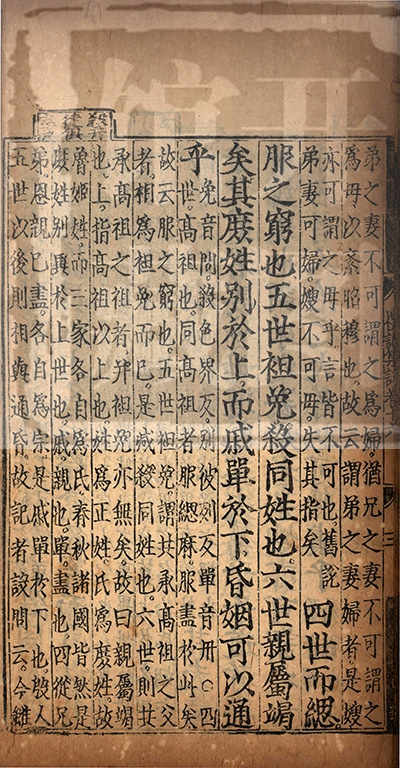 弟之妻不可謂之爲婦猶兄之妻不可謂之
爲母以紊昭穆也故云謂弟之妻婦者是嫂
亦可謂之母乎言皆不可也舊說
弟妻可婦嫂不可母失其指矣
四世而緦
服之窮也五世袒免殺同姓也六世親屬竭
矣其庶姓別於上而戚單於下昏姻可以通
乎
免音問殺色界反別彼列反單音丹○四
世高祖也同高祖者服緦麻服盡於此矣
故云服之窮也五世袒免謂共承高祖之父
者相爲袒免而已是减殺同姓也六世則共
承高祖之祖者并袒免亦無矣故曰親屬竭
也上指高祖以上也姓爲正姓氏爲庶姓故
魯姬姓而三家各自爲氏春秋諸國皆然是
庶姓別異於上世也戚親也單盡也四從兄
弟恩親已盡各自爲宗是戚單於下也殷人
五世以後則相與通昏故記者設問云今雖
三